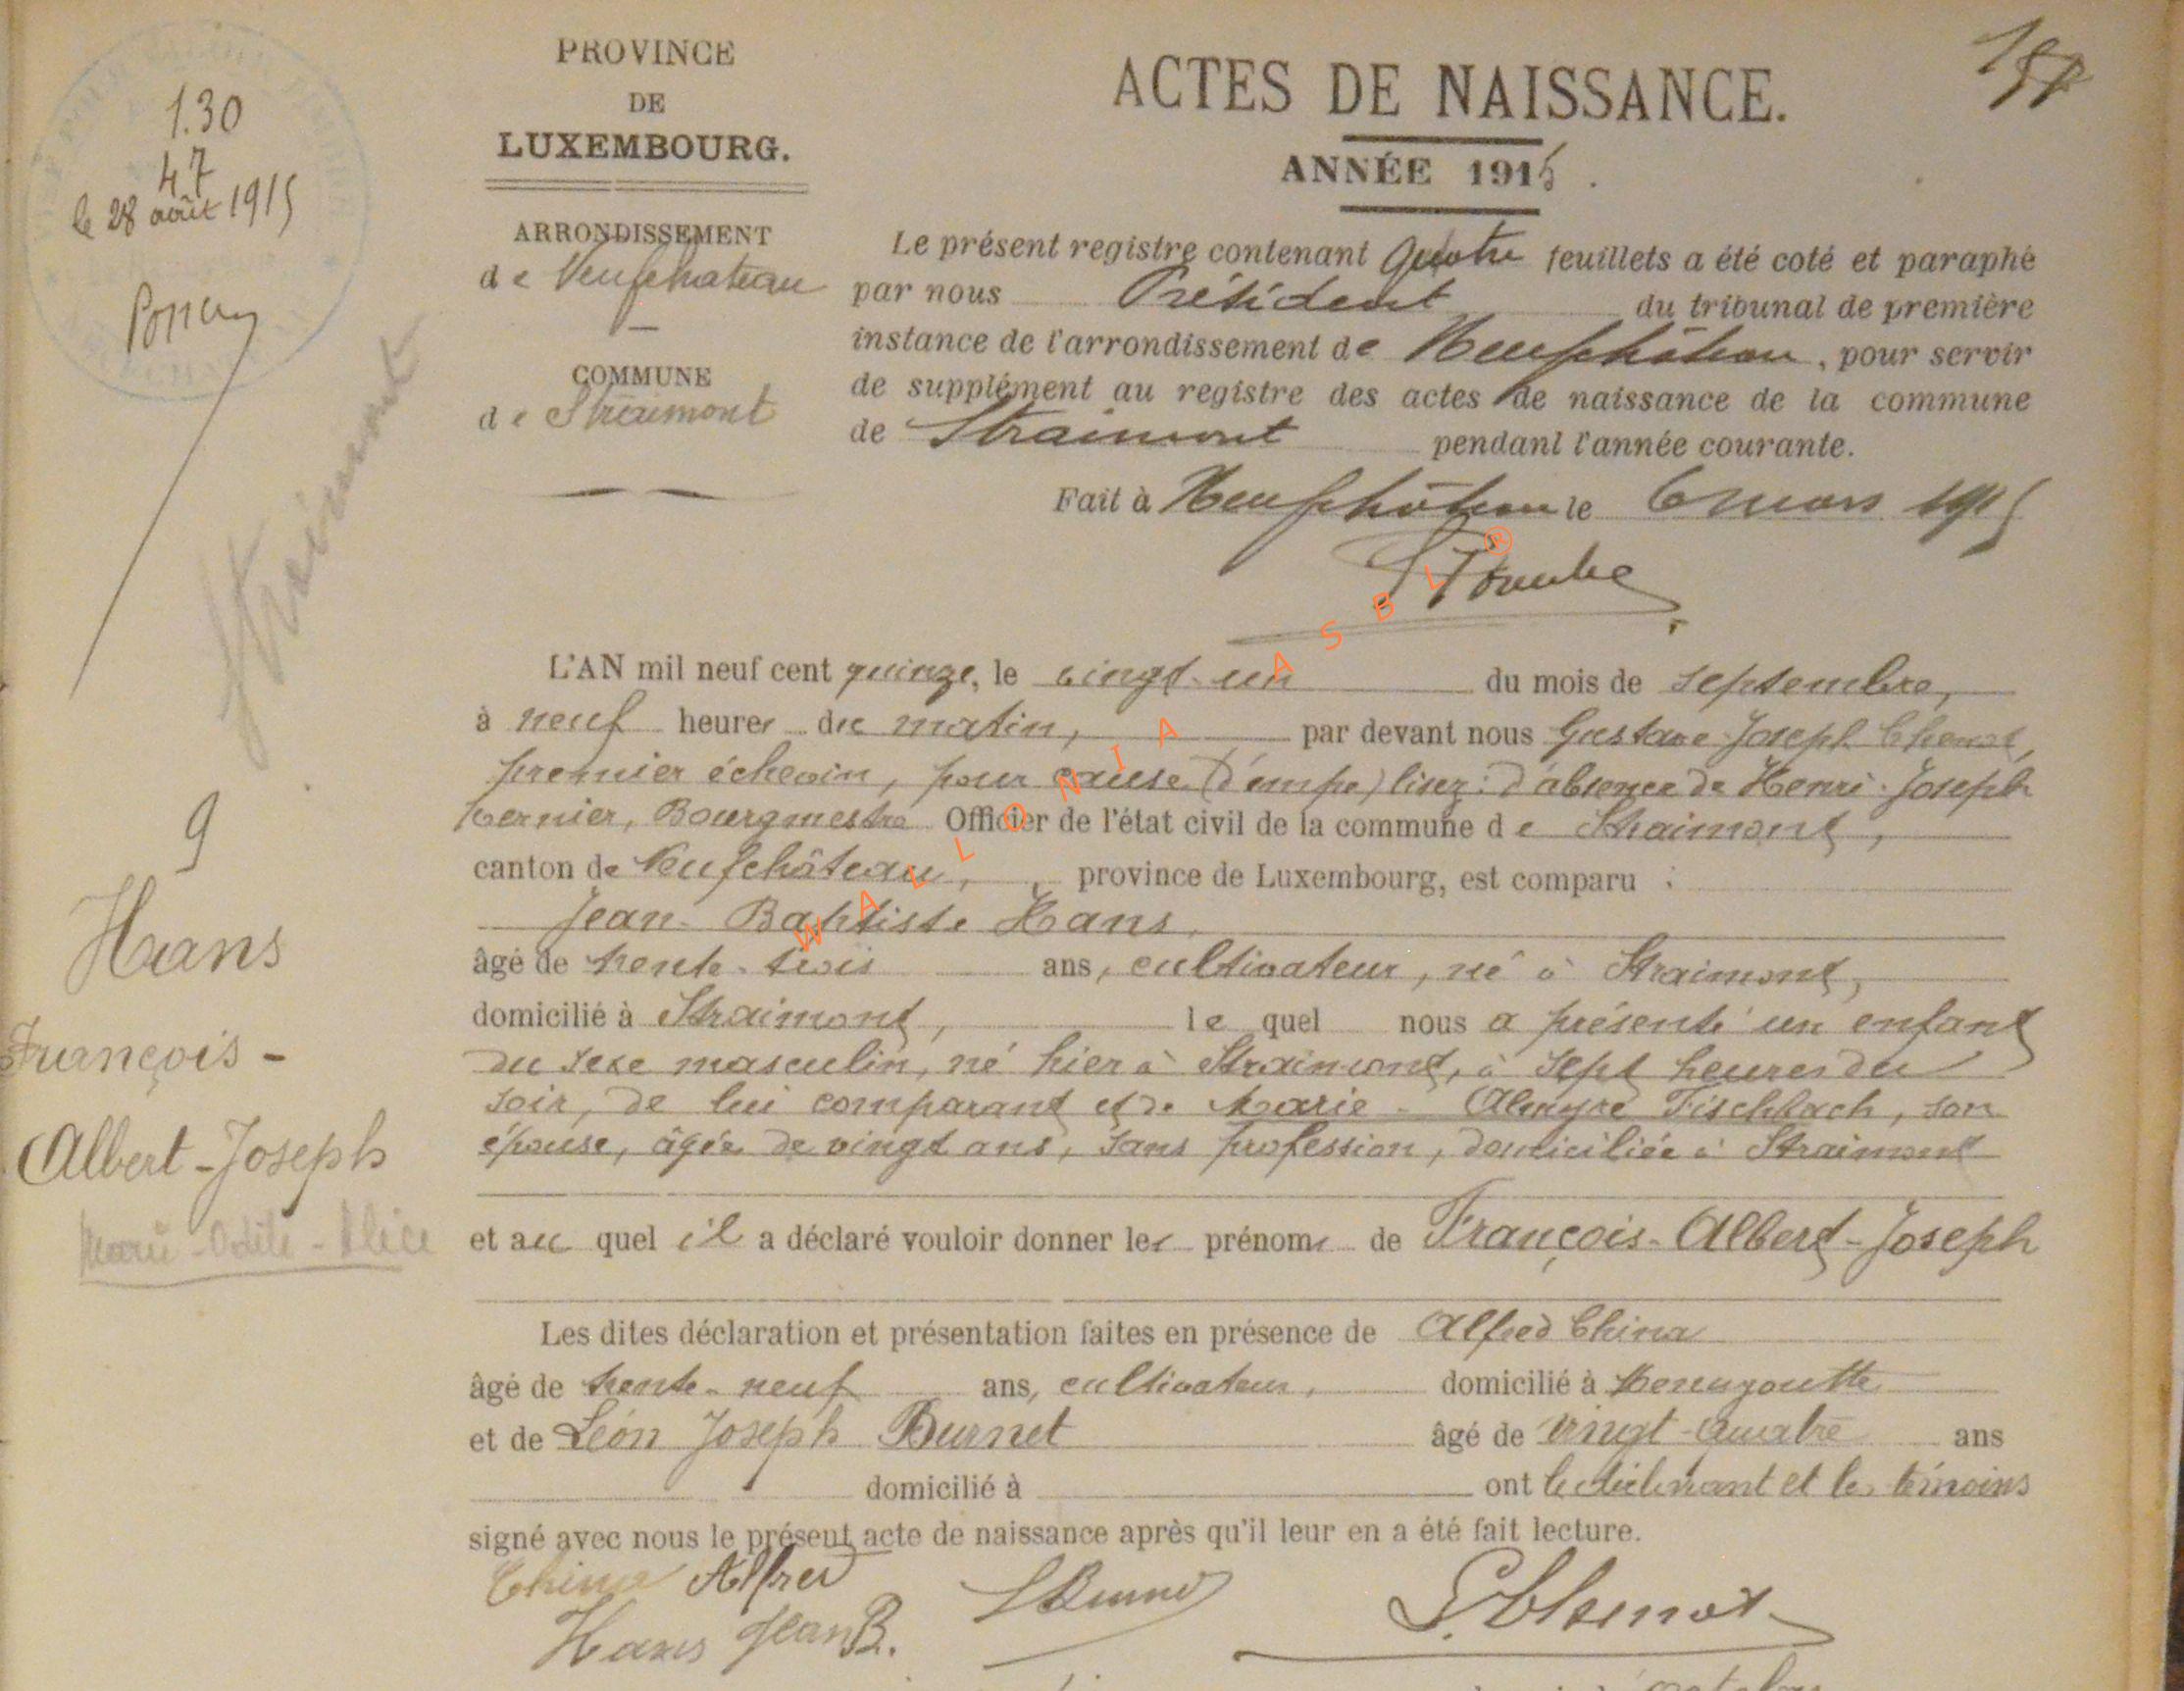 1.30
47
le 28 août 1915
Straimont
PROVINCE
DE
LUXEMBOURG.
ARRONDISSEMENT
de Neufchateau
COMMUNE
de Straimont
ACTES DE NAISSANCE.
ANNÉE 1915.
Le présent registre contenant quatre feuillets a été coté et paraphé
par nous Président du tribunal de première
instance de l'arrondissement de Neufchâteau, pour servir
de supplément au registre des actes de naissance de la commune
de Straimont pendant l'année courante.
Fait à Neufchâteau le 6 mars 1915
WALLONIA ASBL ®
L'AN mil neuf cent quinze, le vingt-un du mois de septembre,
à neuf heures du matin, par devant nous Gustave Joseph Chenot,
premier échevin, pour cause (d'empe) lisez: d'absence de Henri-Joseph
Bourgmestre Officier de l'état civil de la commune de Straimont,
canton de Neufchâteau, province de Luxembourg, est comparu :
Jean-Baptiste Hans,
âgé de trente-trois ans, cultivateur, né à Straimont,
domicilié à Straimont, lequel nous a présenté un enfant
du sexe masculin, né hier à Straimont, à sept heures du
soir, de lui comparant et de Marie- Fischbach, son
épouse, âgée de vingt ans, sans profession, domiciliée à Straimont
et au quel il a déclaré vouloir donner les prénoms de François-Albert-Joseph
Les dites déclaration et présentation faites en présence de Alfred China
âgé de trente-neuf ans, cultivateur, domicilié à Menugoutte
et de Léon Joseph Burnet âgé de vingt-quatre ans
domicilié à ont le déclarant et les témoins
signé avec nous le présent acte de naissance après qu'il leur en a été fait lecture.
China Alfred
Hans Jean B.
G. Chenot
9
Hans
François-
Albert-Joseph
Marie-Odile-Alice